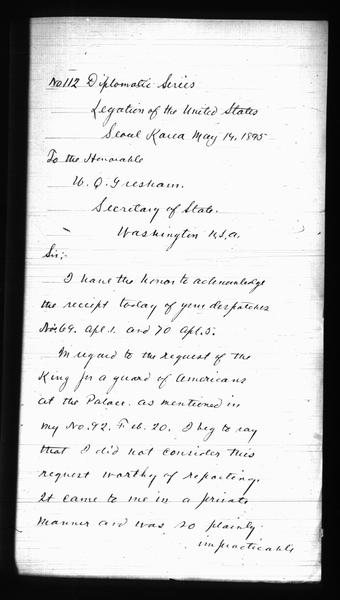 No 112 Diplomatic Series
Legation of the United States
Seoul Korea May 14, 1895
To the Honorable
W. Q. Gresham.
Secretary of State.
Washington U.S.A.
Sir:-
I have the honor to acknowledge
the receipt today of your despatches
Nos 69. Apl. 1. and 70 Apl. 5.
In regard to the request of the
King for a guard of Americans
at the Palace. as mentioned in
my No. 92. Feb. 20. I beg to say
that I did not consider this
request worthy of reporting.
It came to me in a private
manner and was so plainly
impracticable